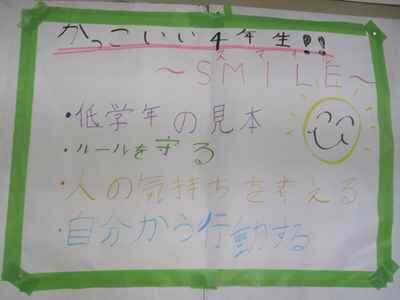 かっこいい4年生!!
～SMILE～
・低学年の見本
・ルールを守る
・人の気持ちを考える
・自分から行動する